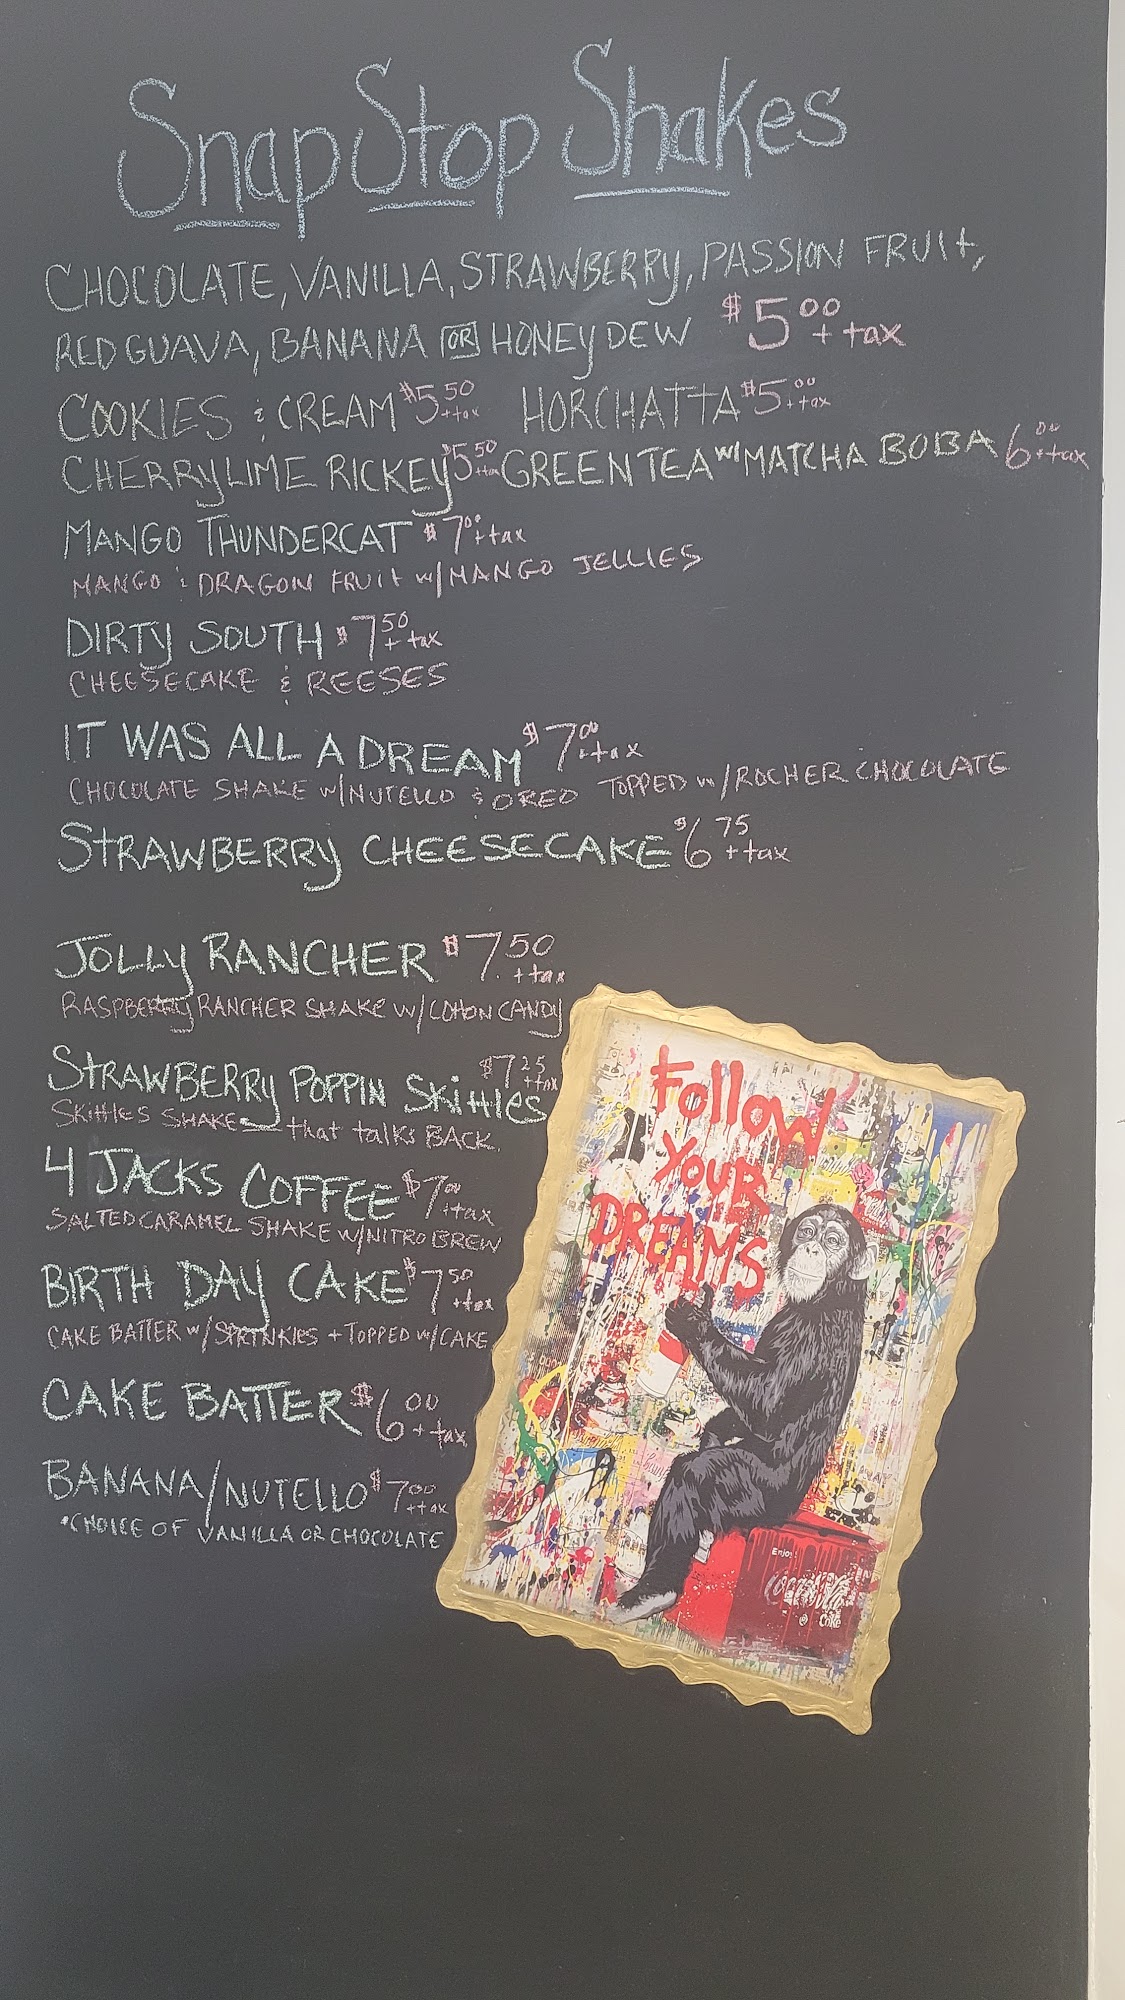 Snap Stop Shakes
CHOCOLATE, VANILLA, STRAWBERRY, PASSION FRUIT,
RED GUAVA, BANANA OR HONEYDEW $5.00 + tax
COOKIES & CREAM $5.50 + tax HORCHATTA $5.00 + tax
CHERRY LIME RICKEY $5.50 + tax GREEN TEA W/ MATCHA BOBA 6.00 + tax
MANGO THUNDERCAT $7.00 + tax
MANGO & DRAGON FRUIT W/ MANGO JELLIES
DIRTY SOUTH $7.50 + tax
CHEESECAKE & REESES
IT WAS ALL A DREAM $7.00 + tax
CHOCOLATE SHAKE W/ NUTELLO & OREO TOPPED W/ ROCHER CHOCOLATE
STRAWBERRY CHEESECAKE $6.75 + tax
JOLLY RANCHER $7.50 + tax
RASPBERRY RANCHER SHAKE W/ COTTON CANDY
STRAWBERRY POPPIN SKITTLES $7.25 + tax
SKITTLES SHAKE — that talks BACK.
4 JACKS COFFEE $7.00 + tax
SALTED CARAMEL SHAKE W/ NITRO BREW
BIRTH DAY CAKE $7.50 + tax
CAKE BATTER W/ SPRINKLES + TOPPED W/ CAKE
CAKE BATTER $6.00 + tax
BANANA/NUTELLO $7.00 + tax
• CHOICE OF VANILLA OR CHOCOLATE
Follow
YOUR
DREAMS
Enjoy
Coca-Cola
Coke